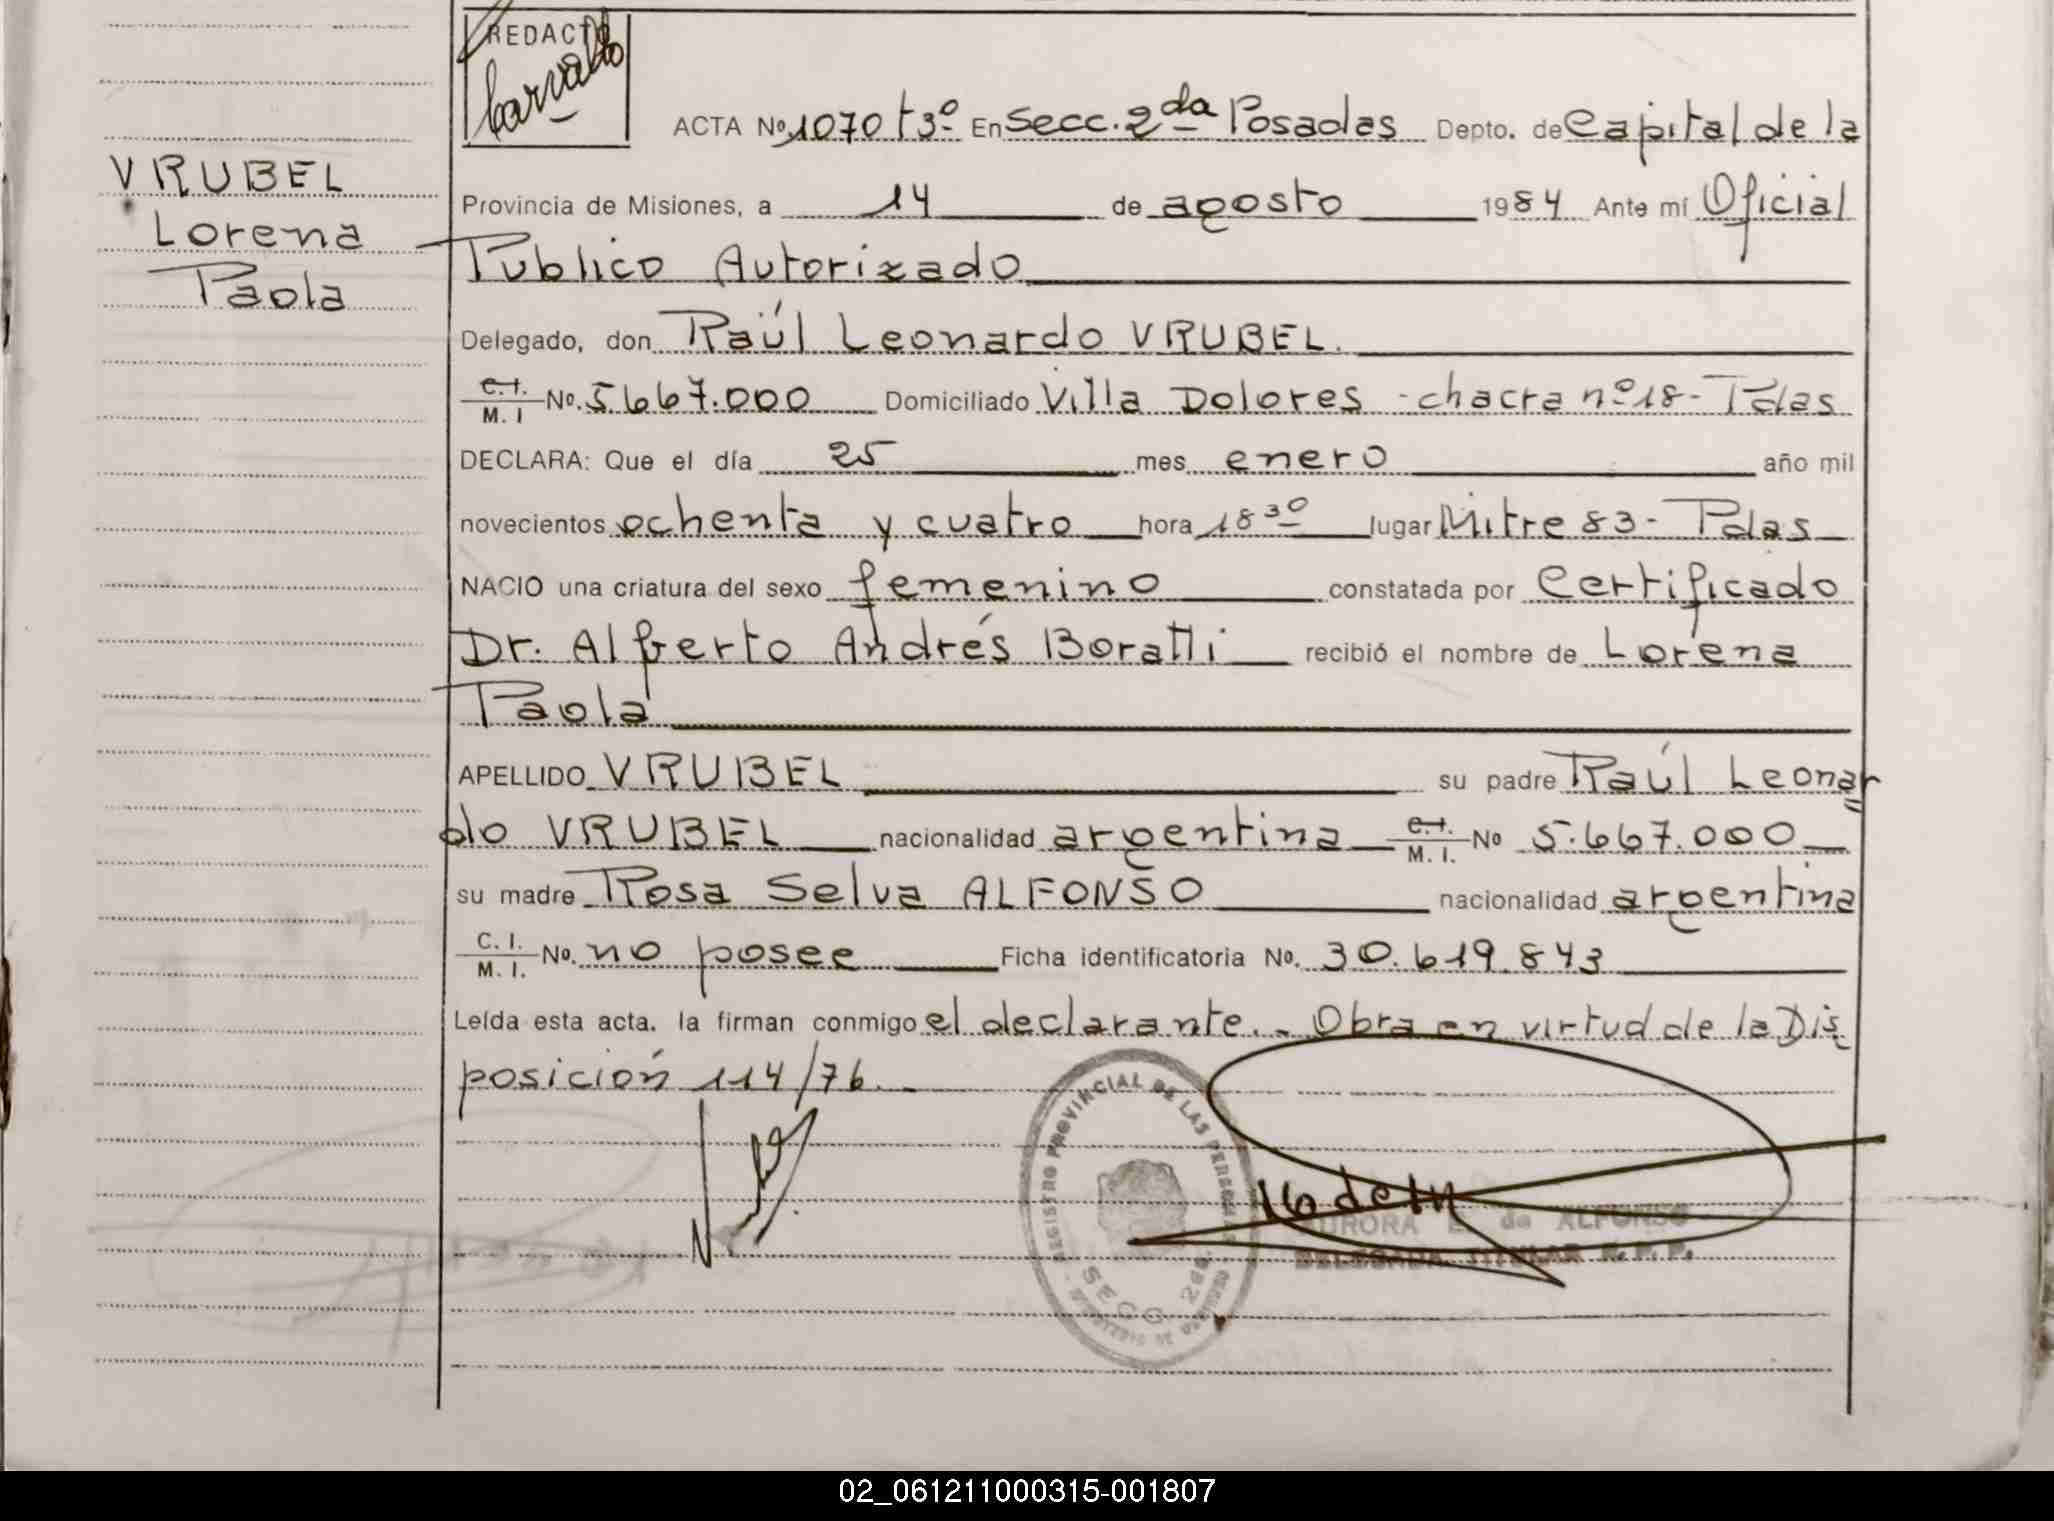 REDACTÓ
Carvallo
ACTA No. 1070 t3º En Secc. 2da Posadas Depto. de Capital de la
VRUBEL
Lorena
Paola
Provincia de Misiones, a 14 de agosto 1984 Ante mí Oficial
Publico Autorizado
Delegado, don Raúl Leonardo VRUBEL.
C.I. M. I No. 5.667.000 Domiciliado Villa Dolores - chacra nº 18 - Pdas
DECLARA: Que el día 25 mes enero año mil
novecientos ochenta y cuatro hora 18 30 lugar Mitre 83 - Pdas
NACIO una criatura del sexo femenino constatada por Certificado
Dr. Alberto Andrés Boratti recibió el nombre de Lorena
Paola
APELLIDO VRUBEL su padre Raúl Leonar
do VRUBEL nacionalidad argentina C.I. M. I. No 5.667.000
su madre Rosa Selva ALFONSO nacionalidad argentina
C. I. M. I. No. no posee Ficha identificatoria No. 30.619.843
Leída esta acta. la firman conmigo el declarante. - Obra en virtud de la Dis
posición 114/76. -
REGISTRO PROVINCIAL DE LAS PERSONAS
SECC. 2da.
AURORA E. de ALFONSO
DELEGADA TITULAR R. P. P.
02_061211000315-001807